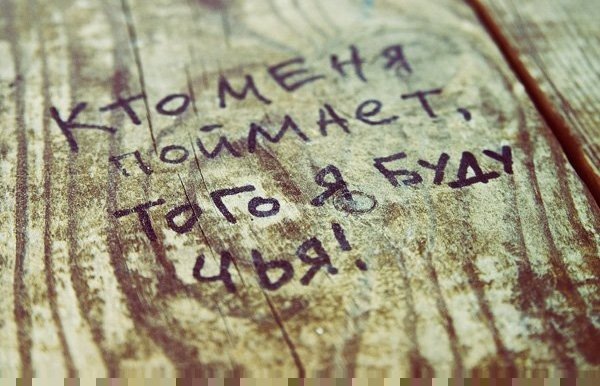 КТО МЕНЯ
ПОЙМАеТ,
ТОГО Я БУДУ
ЧЬЯ!